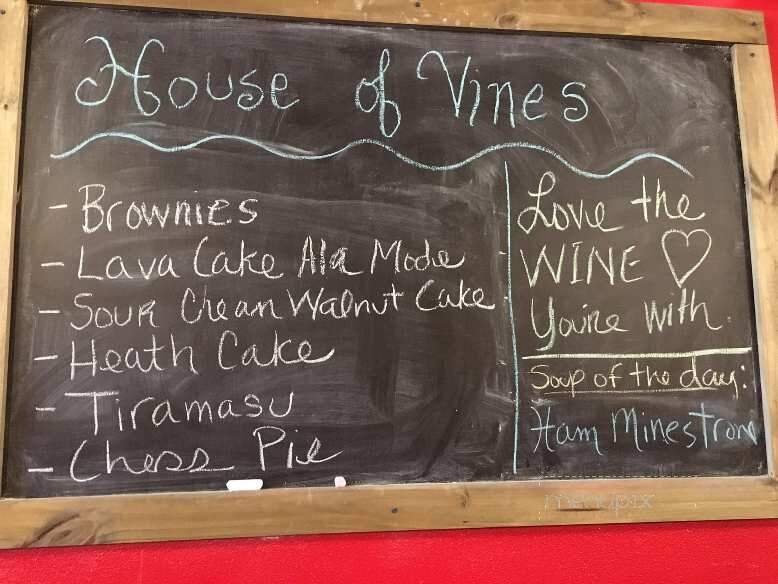 House of Vines
- Brownies
- Lava Cake Ala Mode
- Sour Cream Walnut Cake
- Heath Cake
- Tiramasu
- Chess Pie
Love the
WINE ♡
You're with.
Soup of the day:
Ham Minestrone
menupix